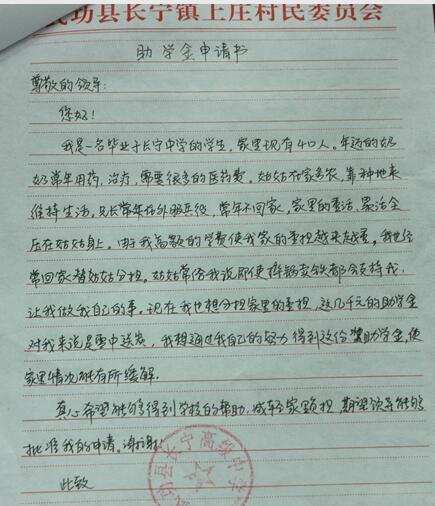 武功县长宁镇上庄村民委员会
助学金申请书
尊敬的领导：
您好！
我是一名毕业于长宁中学的学生，家里现有4口人。年迈的奶
奶常年用药，治疗，需要很多的医药费。姑姑在家务农，靠种地来
维持生活。兄长常年在外服兵役，常年不回家，家里的重活、累活全
压在姑姑身上。由于我高额的学费使我家的重担越来越重。我也经
常回家替姑姑分担。姑姑常俗我说即使摔锅卖铁都会支持我，
让我做我自己的事。现在我也想分担家里的重担，这几千元的助学金
对我来说是雪中送炭，我想通过我自己的努力得到这份助学金，使
家里情况能有所缓解。
真心希望能够得到学校的帮助，减轻家负担，期望领导能够
批准我的申请。谢谢！
此致
武功县长宁高级中学